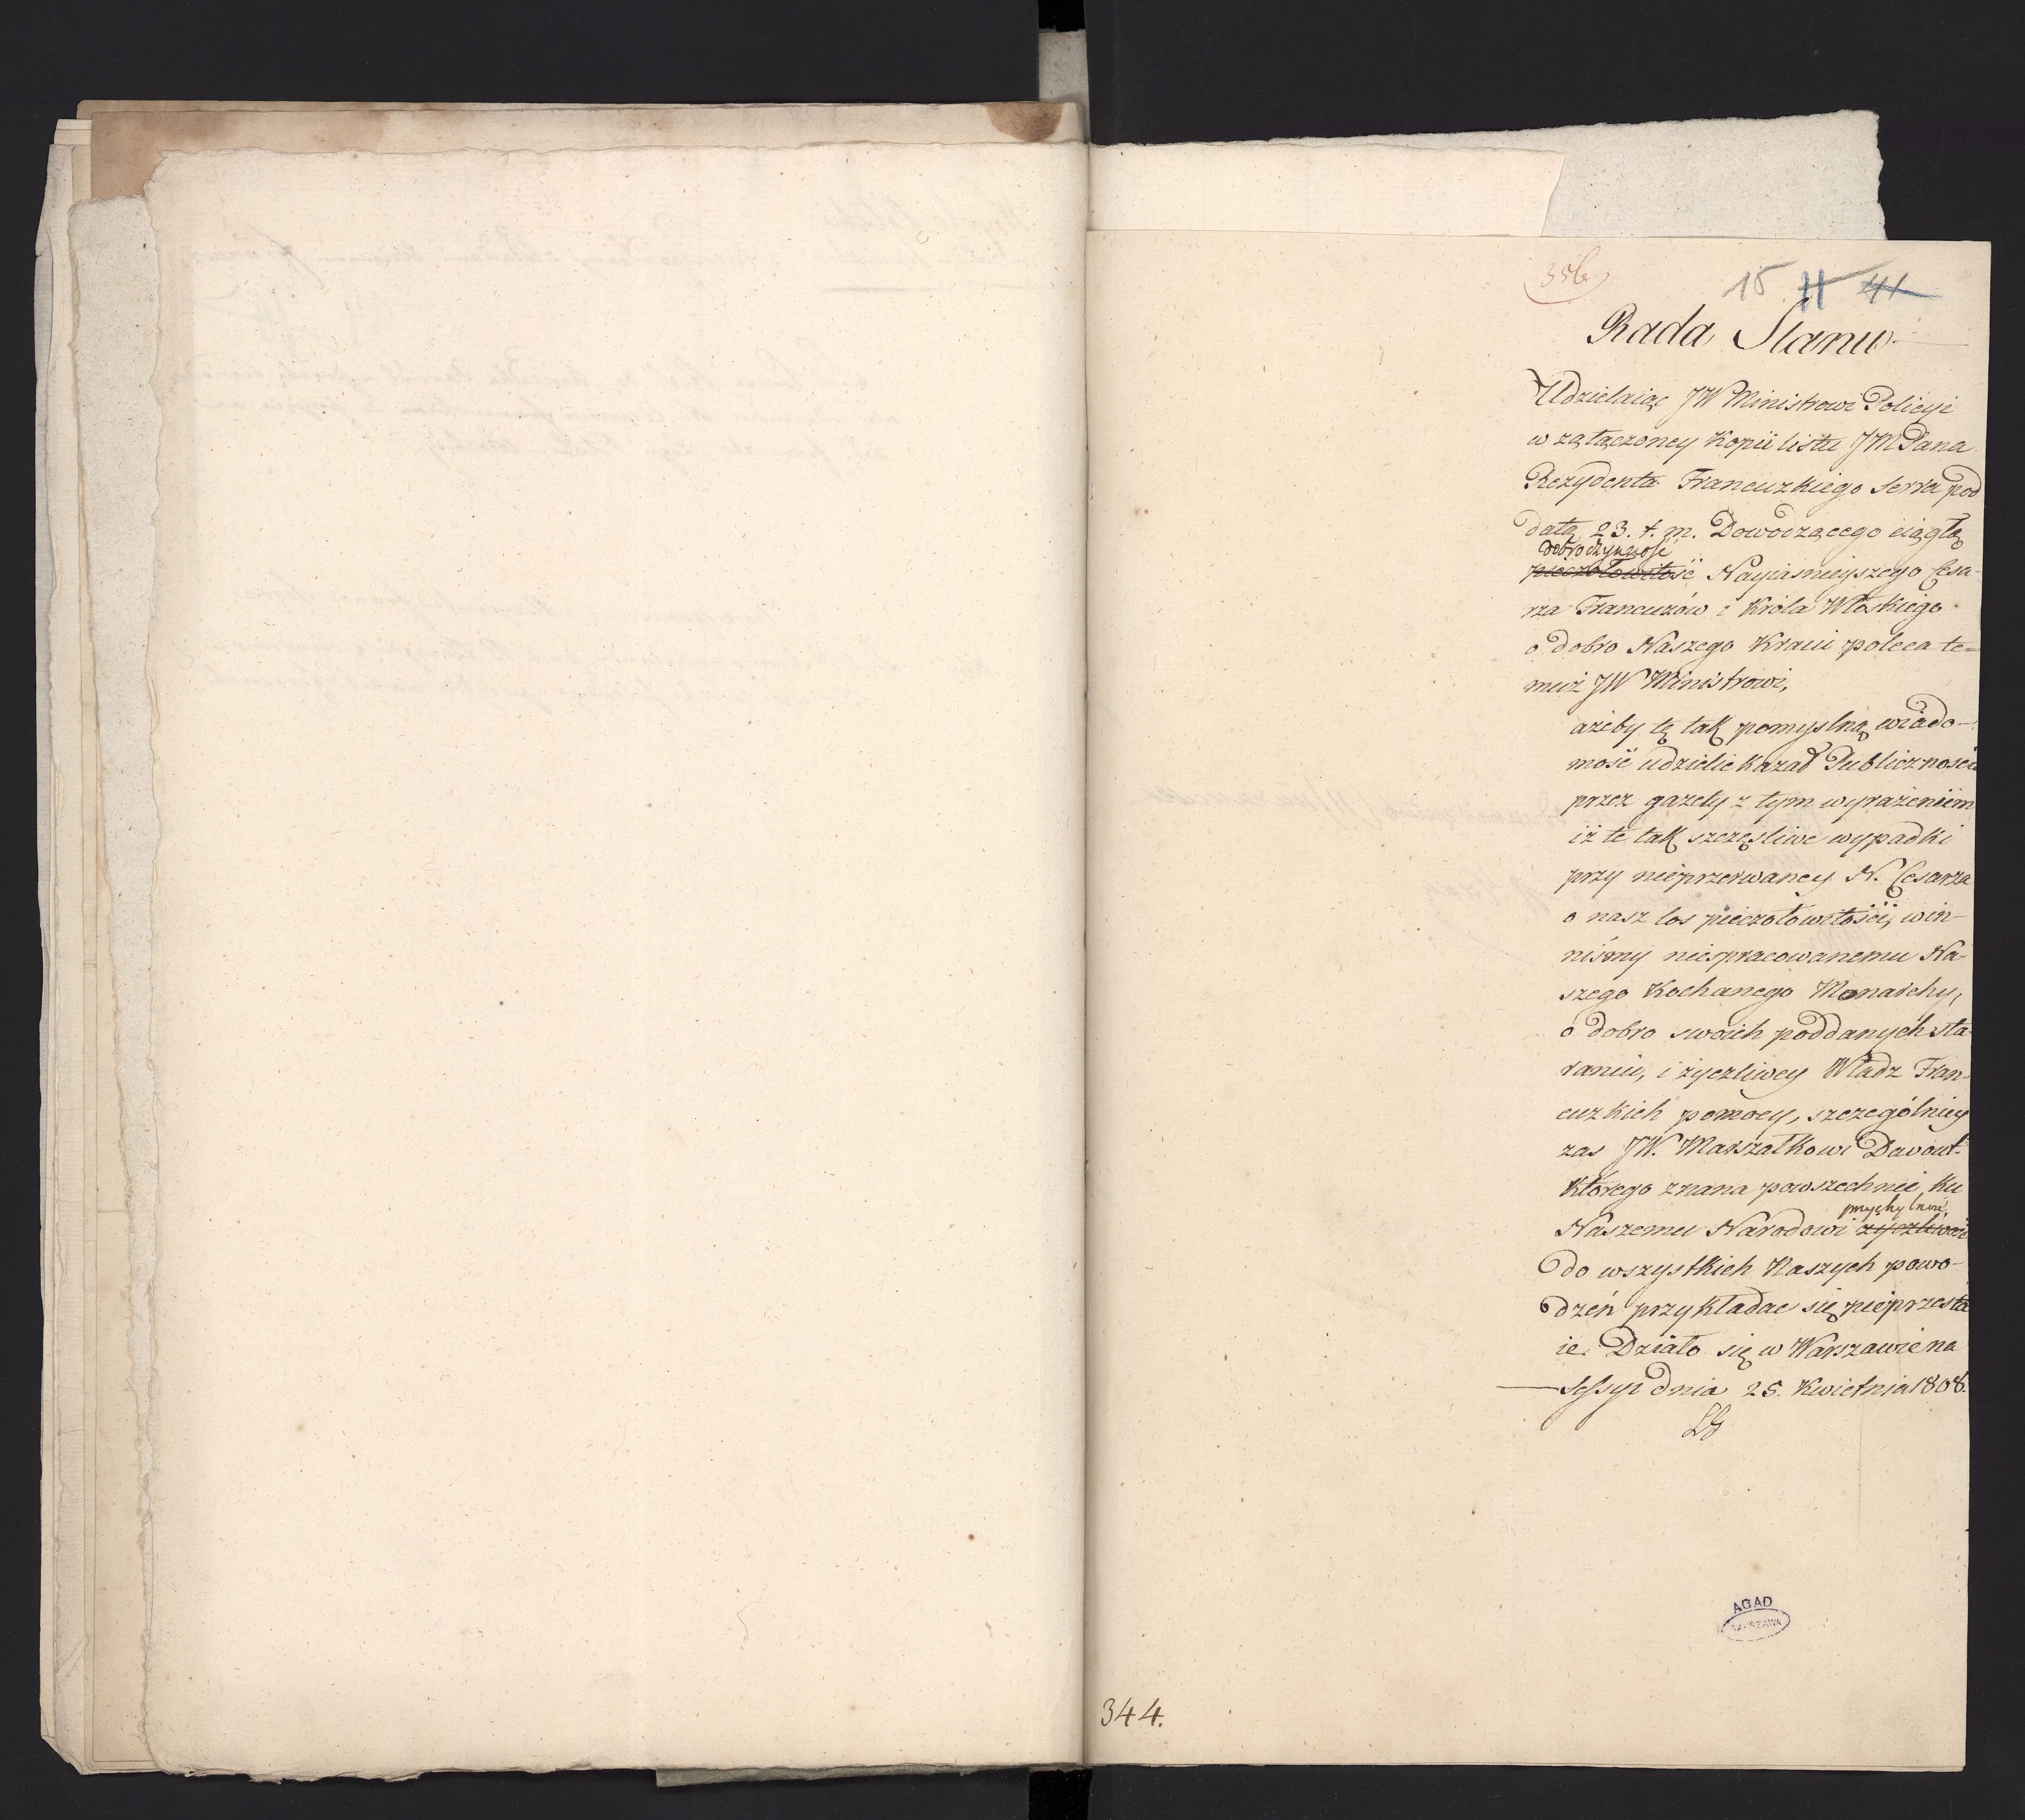 356
15 11 41
Rada Stanu
Udzielaiąc JW Ministrowi Policyi
w załączoney Kopii listu JM Pana
Rezydenta Francuzkiego Serra pod
datą 23. t. m. Dowodzącego ciągłą
dobroczynność
pieczołowitość Nayiasnieyszego Cesa-
rza Francuzów i Króla Włoskiego
o dobro Naszego Kraiu poleca te-
muż JW Ministrowi,
ażeby tę tak pomyslną wiado-
mość udzielić kazał Publicznosci
przez gazety z tym wyrażeniem
iż te tak szczęsliwe wypadki
przy nieprzerwaney N. Cesarza
o nasz los pieczołowitości, win-
niśmy niespracowanemu Na-
szego Kochanego Monarchy,
o dobro swoich poddanych sta-
raniu, i życzliwey Władz Fran-
cuzkich pomocy, szczególniey
zas JW. Marszałkowi Davout
którego znana powszechnie ku
przychylność
Naszemu Narodowi życzliwość
do wszystkich Naszych powo-
dzeń przykładac się nieprzesta
ie. Działo się w Warszawie na
Sessyi dnia 25. Kwietnia 1808.
AGAD
WARSZAWA
344.